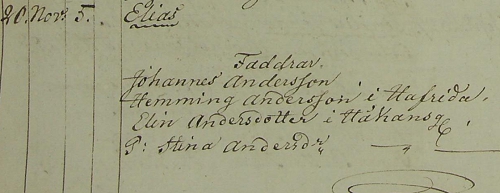 20. Nov. 5. Elias
Faddrar.
Johannes Andersson
Hemming Andersson i Hafrida.
Elin Andersdotter i Håkansg
P: Stina Andersdr